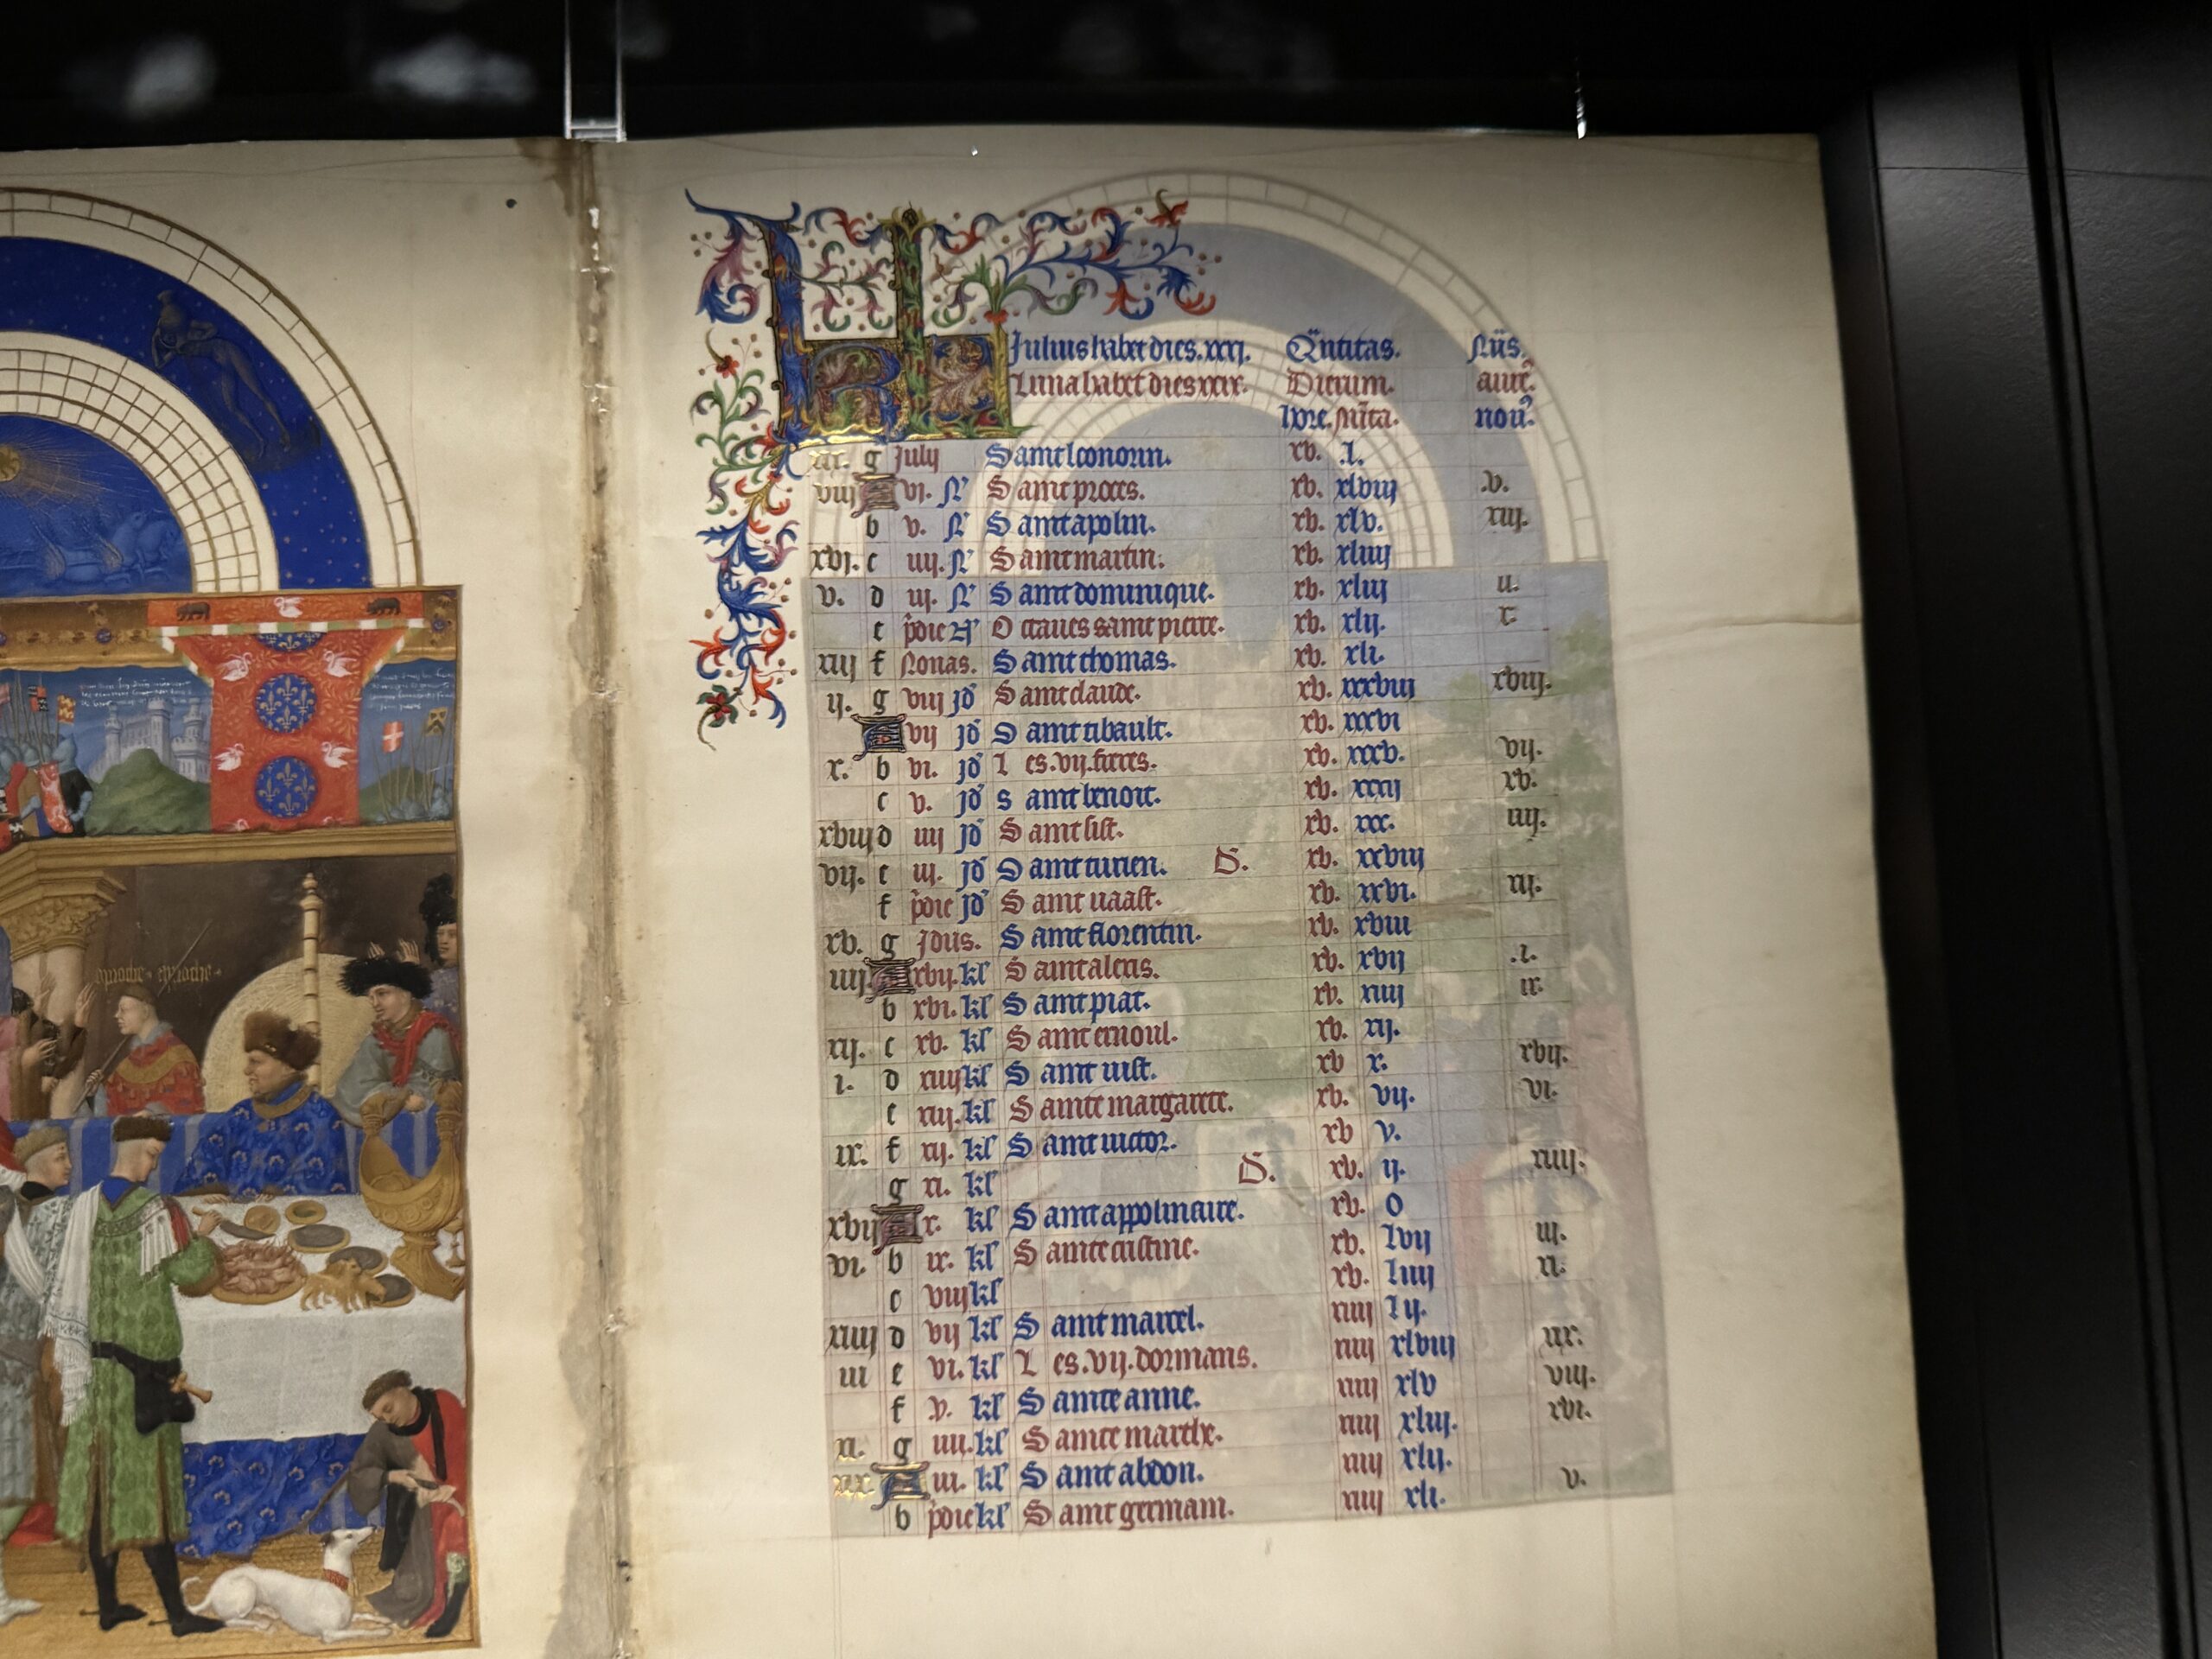 Julius habet dies .xxxj. Q̃ntitas. Nũs.
Luna habet dies xxix. Dierum. aure᷒.
hore. Mĩta. nou᷒.
xix. g July Saint leonorin. xv. .l.
viij A vj. N᷒ Saint proces. xv. xlviij .v.
b v. N᷒ Saint apolin. xv. xlv. xiij.
xvj. c iiij. N᷒ Saint martin. xv. xliiij
v. d iij. N᷒ Saint dominique. xv. xliij ii.
e p̃die N᷒ Octaues saint pierre. xv. xlij. x.
xiij f Nonas. Saint thomas. xv. xli.
ij. g viij jd᷒ Saint claude. xv. xxxviij xviij.
A vij jd᷒ Saint tibault. xv. xxxvi
x. b vi. jd᷒ Les .vij. freres. xv. xxxv. vij.
c v. jd᷒ saint benoit. xv. xxxij xv.
xviij d iiij jd᷒ Saint sist. xv. xxx. iiij.
vij. e iij. jd᷒ Saint turien. D. xv. xxviij
f p̃die jd᷒ Saint uaast. xv. xxvi. xij.
xv. g Jdus. Saint florentin. xv. xviii
iiij. A xvij. kl᷒ Saint alexis. xv. xvij .i.
b xvi. kl᷒ Saint piat. xv. xiiij ix.
xij. c xv. kl᷒ Saint ernoul. xv. xij.
i. d xiiij kl᷒ Saint iust. xv x. xvij.
e xiij. kl᷒ Sainte margarete. xv. vij. vi.
ix. f xij. kl᷒ Saint uictor. xv v.
g xi. kl᷒ D. xv. ij. xiiij.
xvij A x. kl᷒ Saint appolinaire. xv. o
vi. b ix. kl᷒ Sainte cristine. xv. lvij iij.
c viij kl᷒ xv. liiij xi.
xiiij d vij kl᷒ Saint marcel. xiiij lij.
iij e vi. kl᷒ Les .vij. dormans. xiiij xlviij xix.
f v. kl᷒ Sainte anne. xiiij xlv viij.
xi. g iiii. kl᷒ Sainte marthe. xiiij xliij. xvi.
xix. A iii. kl᷒ Saint abdon. xiiij xlij.
b p̃die kl᷒ Saint germain. xiiij xli. v.